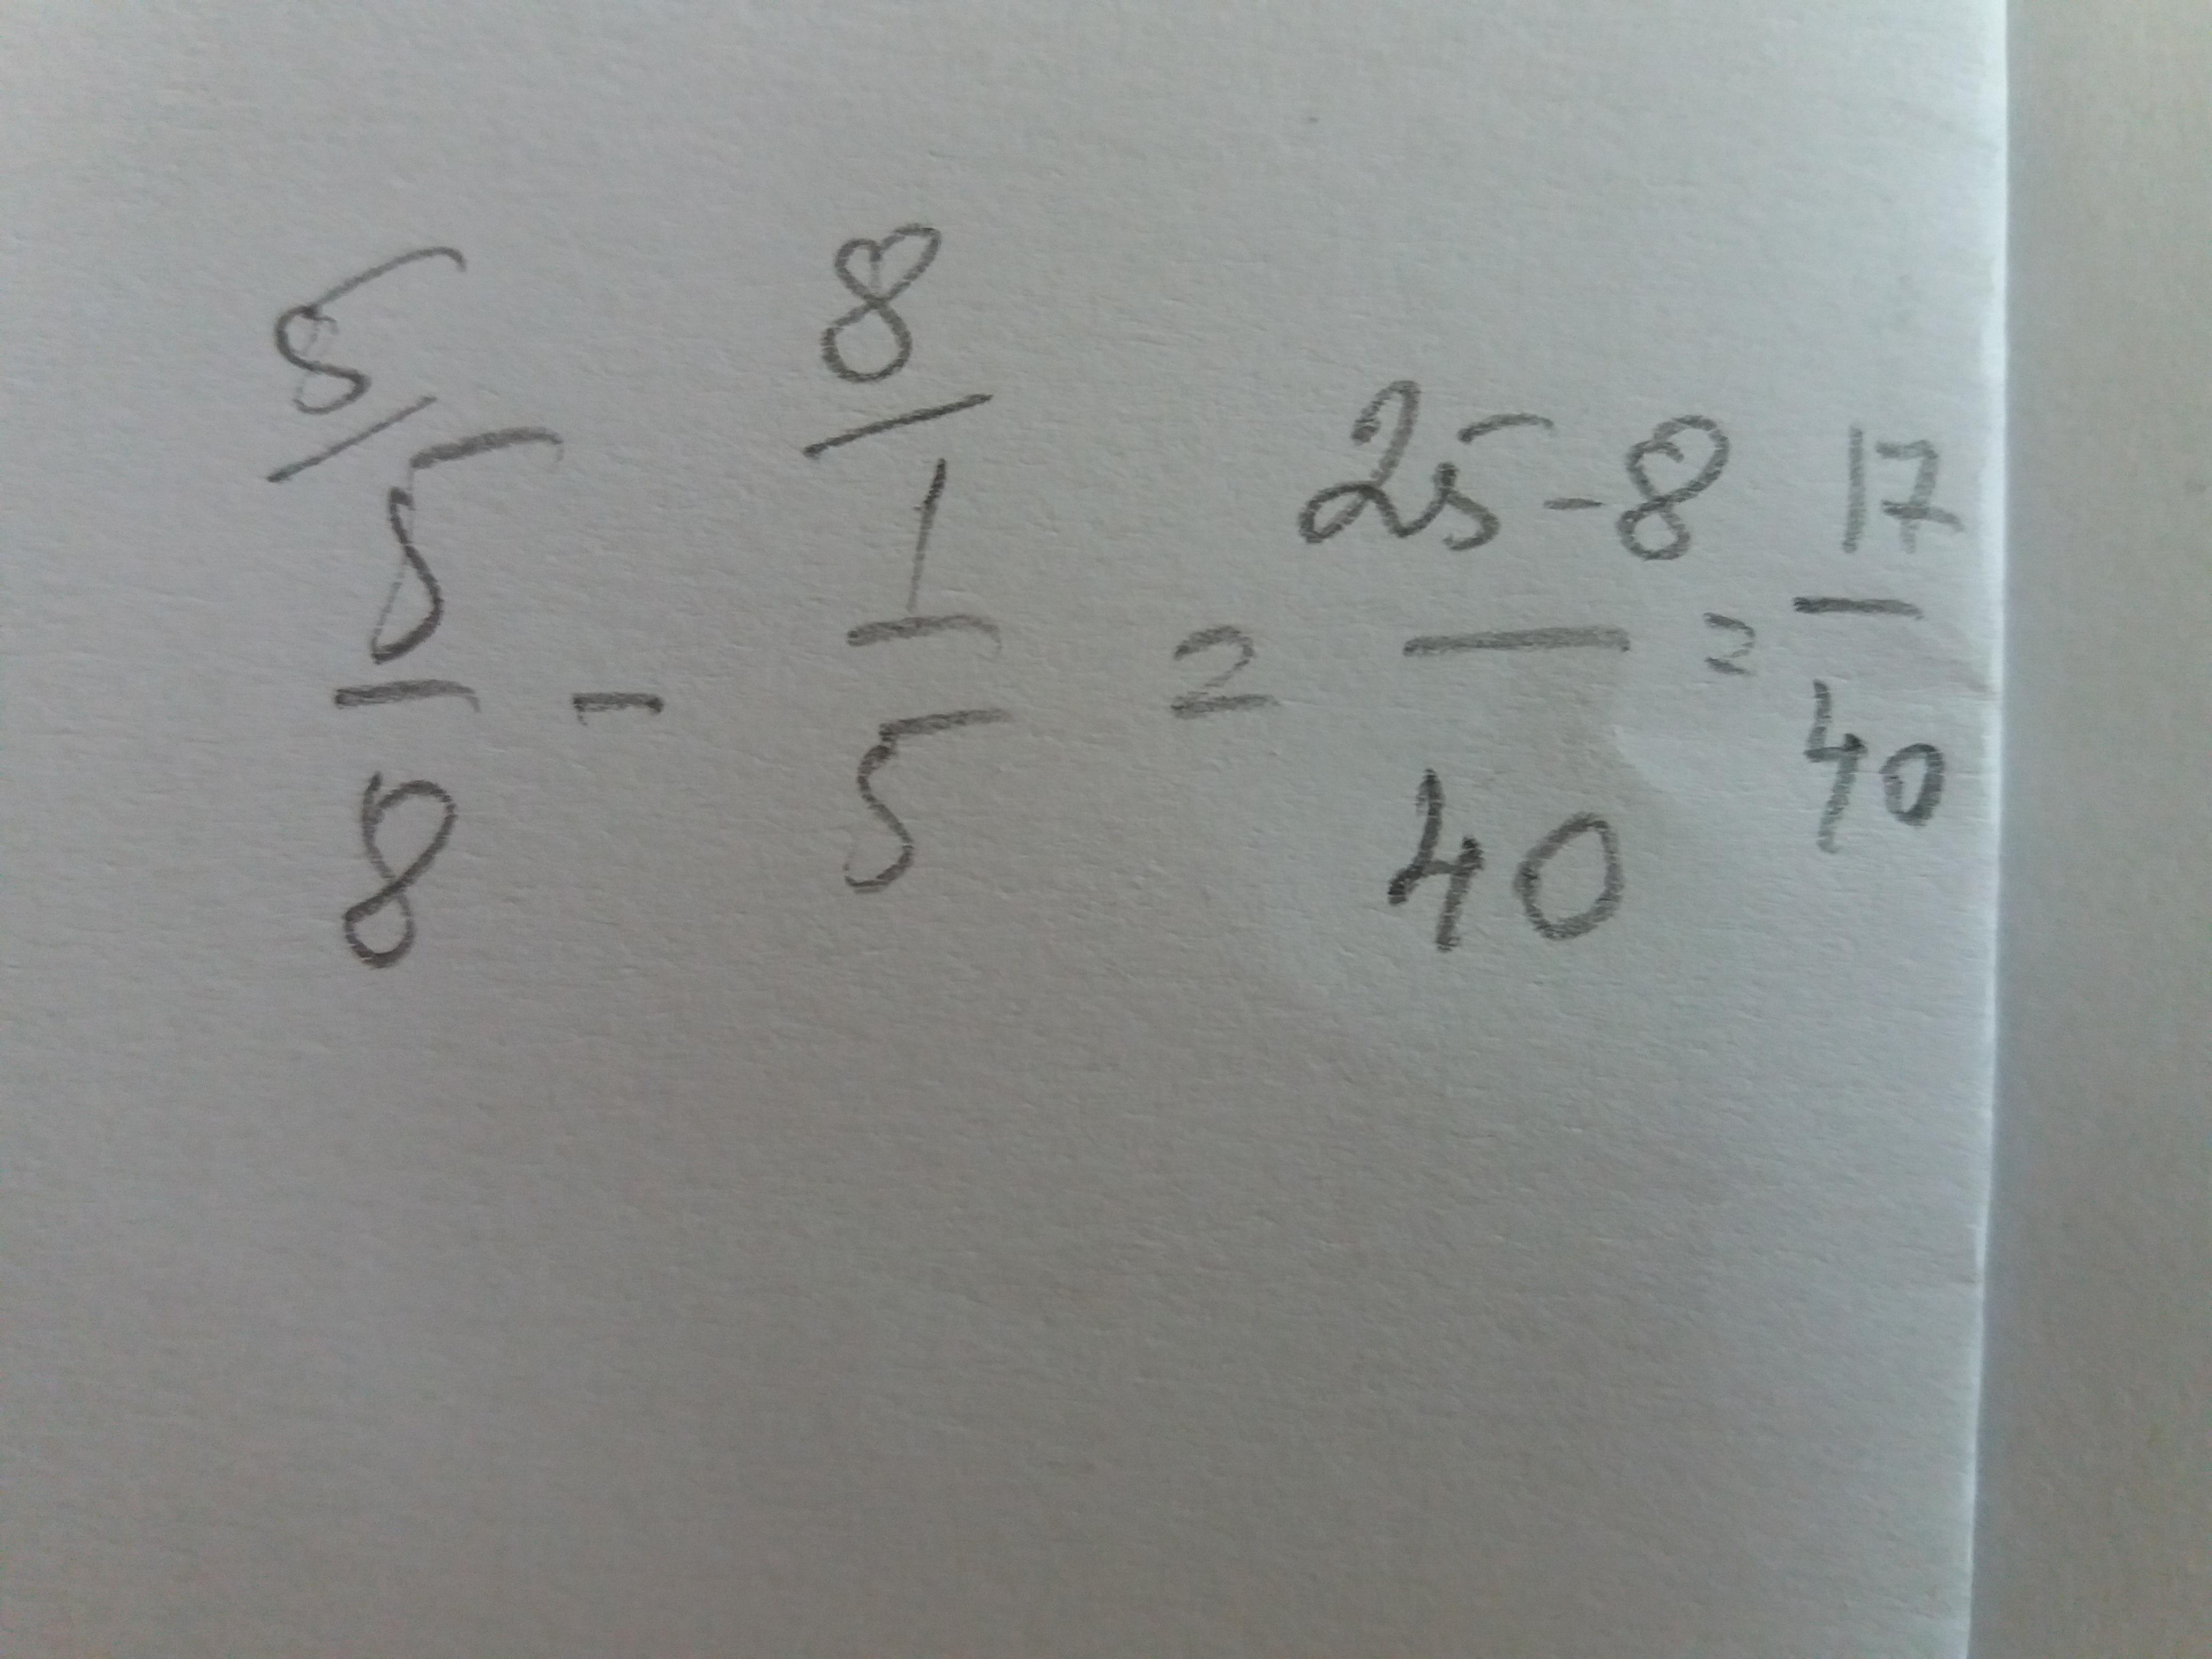 5/ 8/
5/8 - 1/5 = 25-8/40 = 17/40